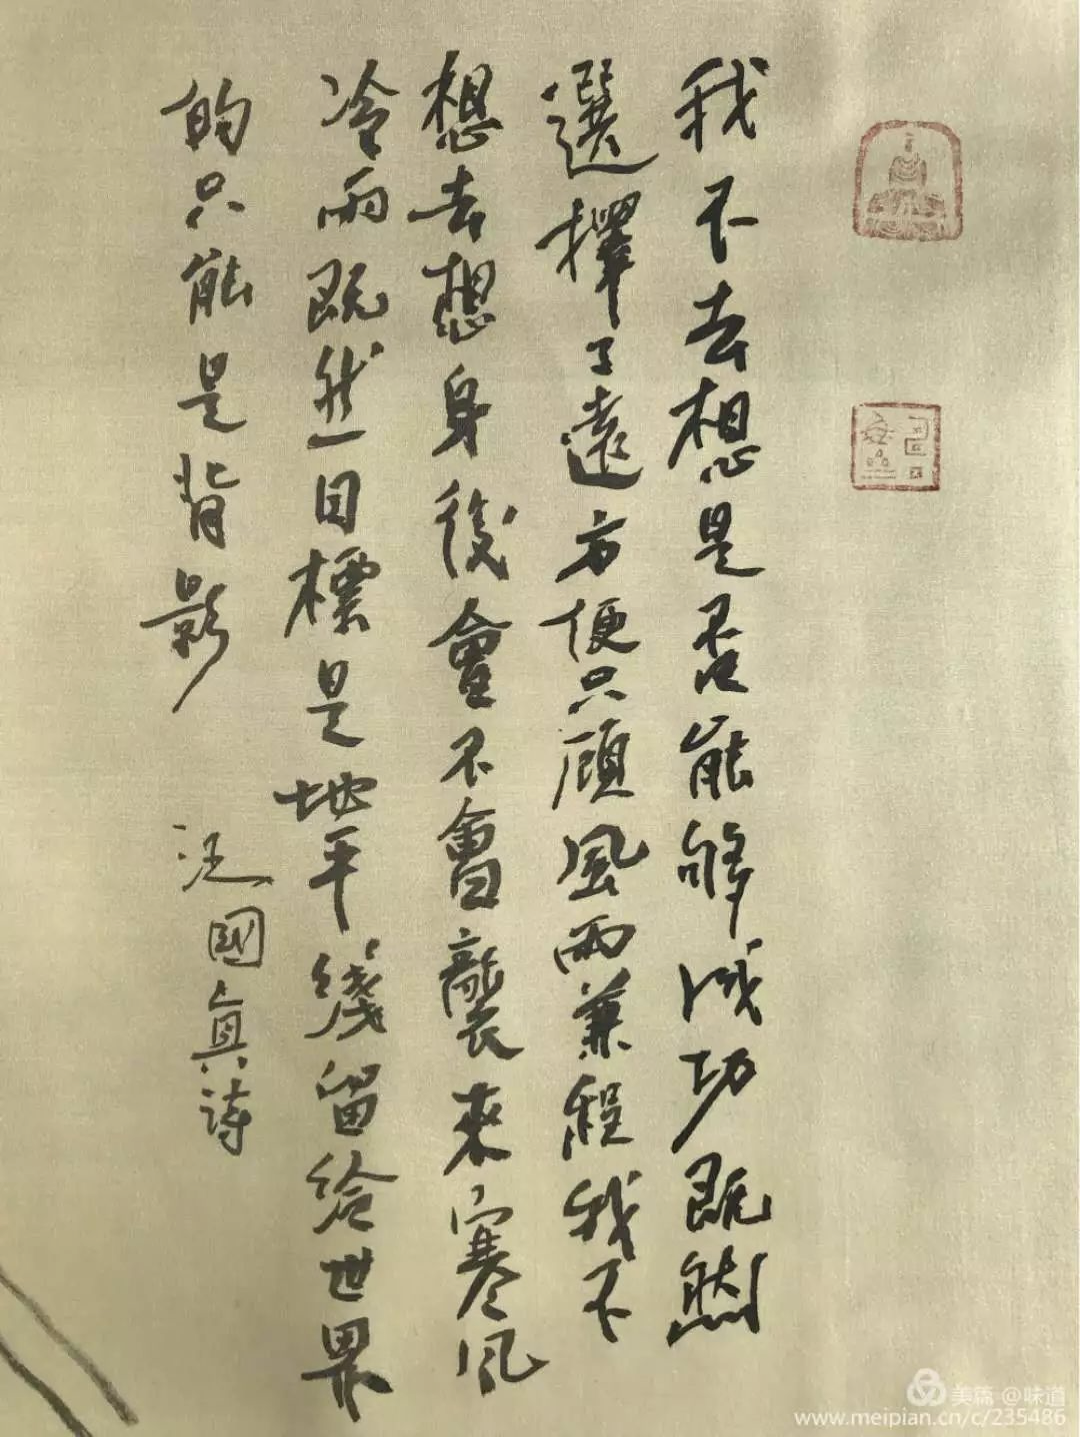 我不去想是否能够成功既然
選擇了遠方便只顧風雨兼程我不
想去想身後會不會襲來寒風
冷雨既然目標是地平綫留給世界
的只能是背影
汪國真詩
美篇 @味道
www.meipian.cn/c/235486